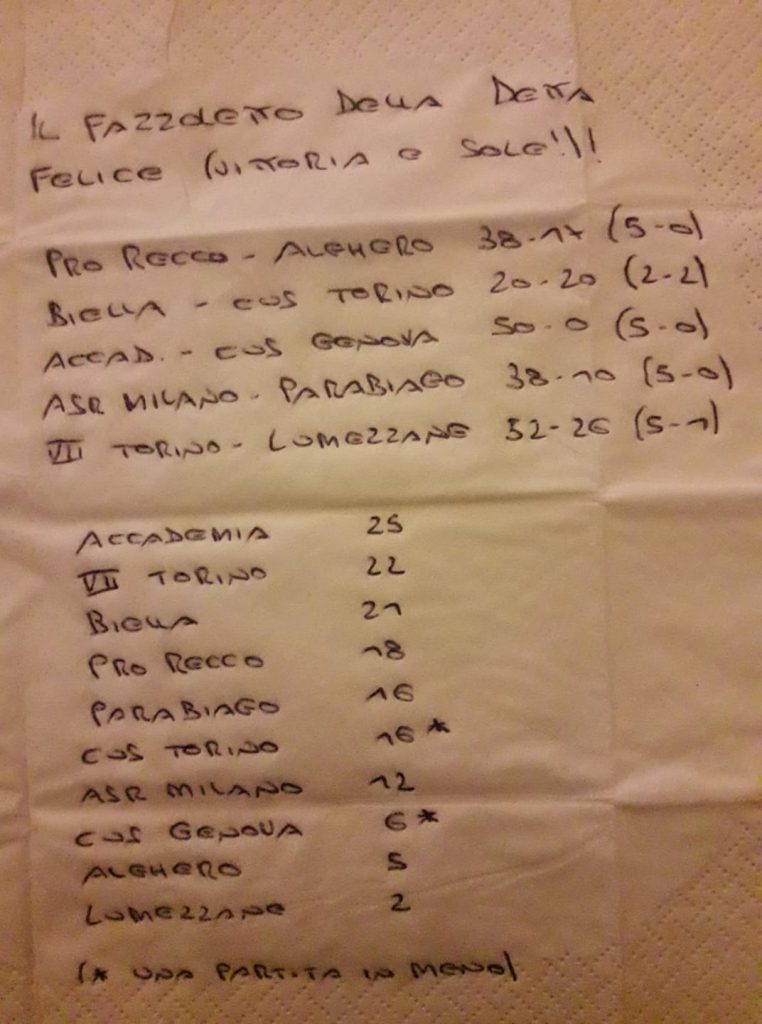 IL FAZZOLETTO DELLA DETTA
FELICE (VITTORIA E SOLE!)!
PRO RECCO - ALGHERO 38-17 (5-0)
BIELLA - CUS TORINO 20-20 (2-2)
ACCAD. - CUS GENOVA 50-0 (5-0)
ASR MILANO - PARABIAGO 38-10 (5-0)
VII TORINO - LUMEZZANE 52-26 (5-1)
ACCADEMIA 25
VII TORINO 22
BIELLA 21
PRO RECCO 18
PARABIAGO 16
CUS TORINO 16*
ASR MILANO 12
CUS GENOVA 6*
ALGHERO 5
LUMEZZANE 2
(* UNA PARTITA IN MENO)